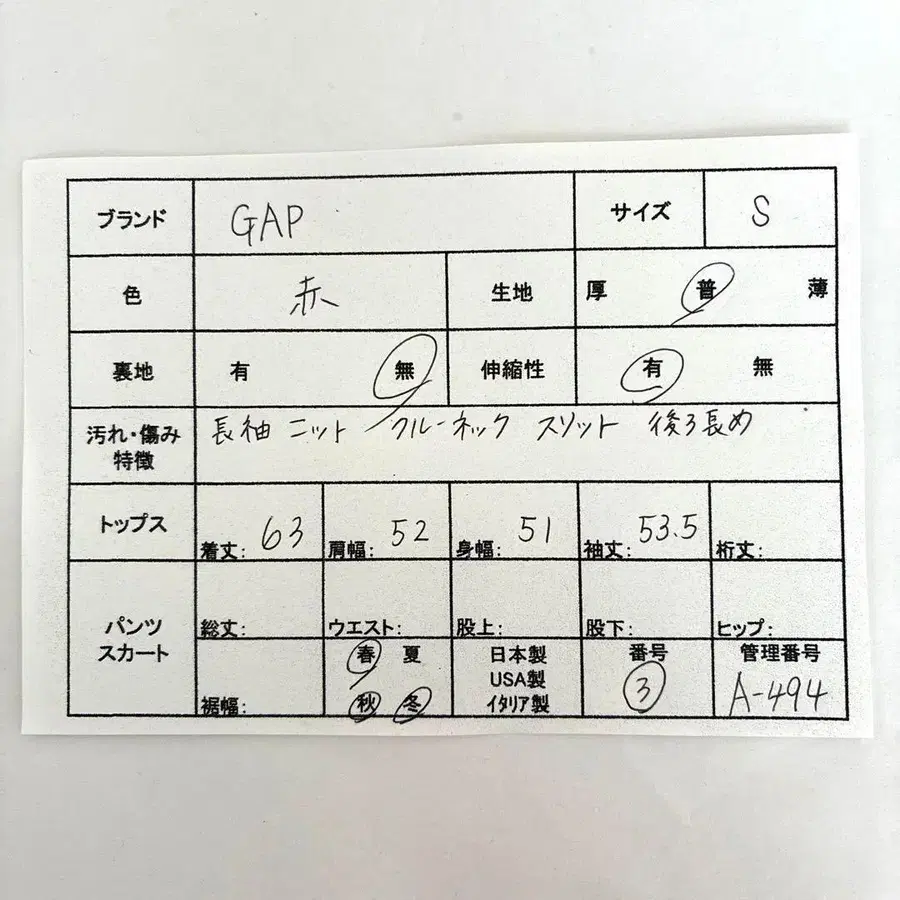 ブランド GAP サイズ S
色 赤 生地 厚 普 薄
裏地 有 無 伸縮性 有 無
汚れ・傷み 長袖 ニット クルーネック スリット 後ろ長め
特徴
トップス 着丈: 63 肩幅: 52 身幅: 51 袖丈: 53.5 裄丈:
パンツ 総丈: ウエスト: 股上: 股下: ヒップ:
スカート 春 夏 日本製 番号 管理番号
USA製 3 A-494
裾幅: 秋 冬 イタリア製